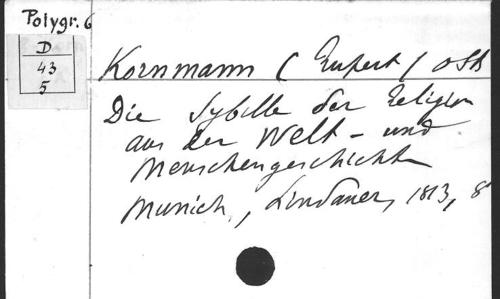 Polygr. 6
D
43
5
Kornmann (Rupert) OSB
Die Sybille der Religion
aus der Welt- und
Menschengeschichte
Munich, Lindauer, 1813, 8°